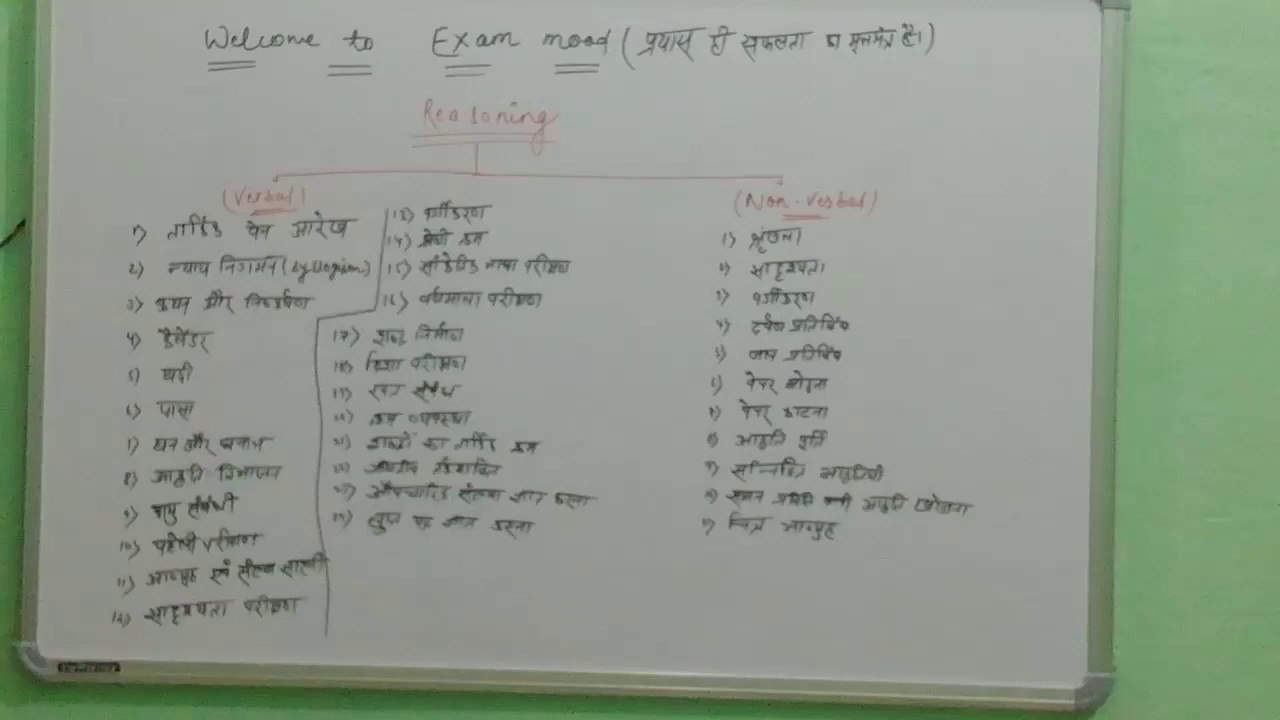 Welcome to Exam mood (प्रयास ही सफलता का मूलमंत्र है।)
Reasoning
(Verbal)
1) तार्किक वेन आरेख
2) न्याय निगमन (syllogism)
3) कथन और निष्कर्षण
4) कैलेंडर
5) घड़ी
6) पासा
7) घन और घनाभ
8) आकृति विभाजन
9) आयु संबंधी
10) पहेली परीक्षण
11) आव्यूह एवं संख्या
12) सादृश्यता परीक्षण
13) वर्गीकरण
14) श्रेणी क्रम
15) सांकेतिक भाषा परीक्षण
16) वर्णमाला परीक्षण
17) शब्द निर्माण
18) दिशा परीक्षण
19) रक्त संबंध
20) क्रम व्यवस्था
21) शब्दों का तार्किक क्रम
22) गणितीय
23) संख्या ज्ञात करना
24) लुप्त पद ज्ञात करना
(Non-Verbal)
1) श्रृंखला
2) सादृश्यता
3) वर्गीकरण
4) दर्पण प्रतिबिंब
5) जल प्रतिबिंब
6) पेपर मोड़ना
7) पेपर काटना
8) आकृति पूर्ति
9) सन्निहित आकृतियाँ
10) समान आकृति खोजना
11) चित्र आव्यूह